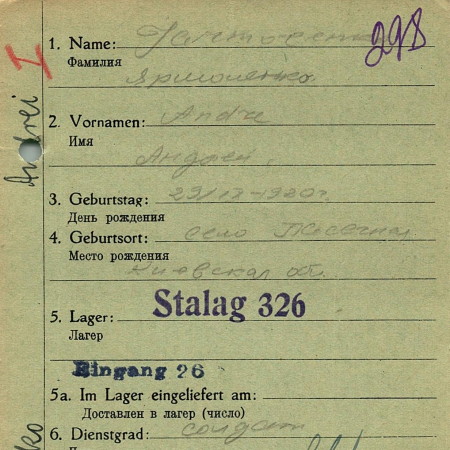 298
I
Andrei
1. Name:
Фамилия
Ярмоленко
2. Vornamen: Andre
Имя
Андрей.
3. Geburtstag:
День рождения
4. Geburtsort: село
Место рождения
Киевская обл.
Stalag 326
5. Lager:
Лагер
Eingang 26
5a. Im Lager eingeliefert am:
Доставлен в лагер (число)
6. Dienstgrad: солдат
ko